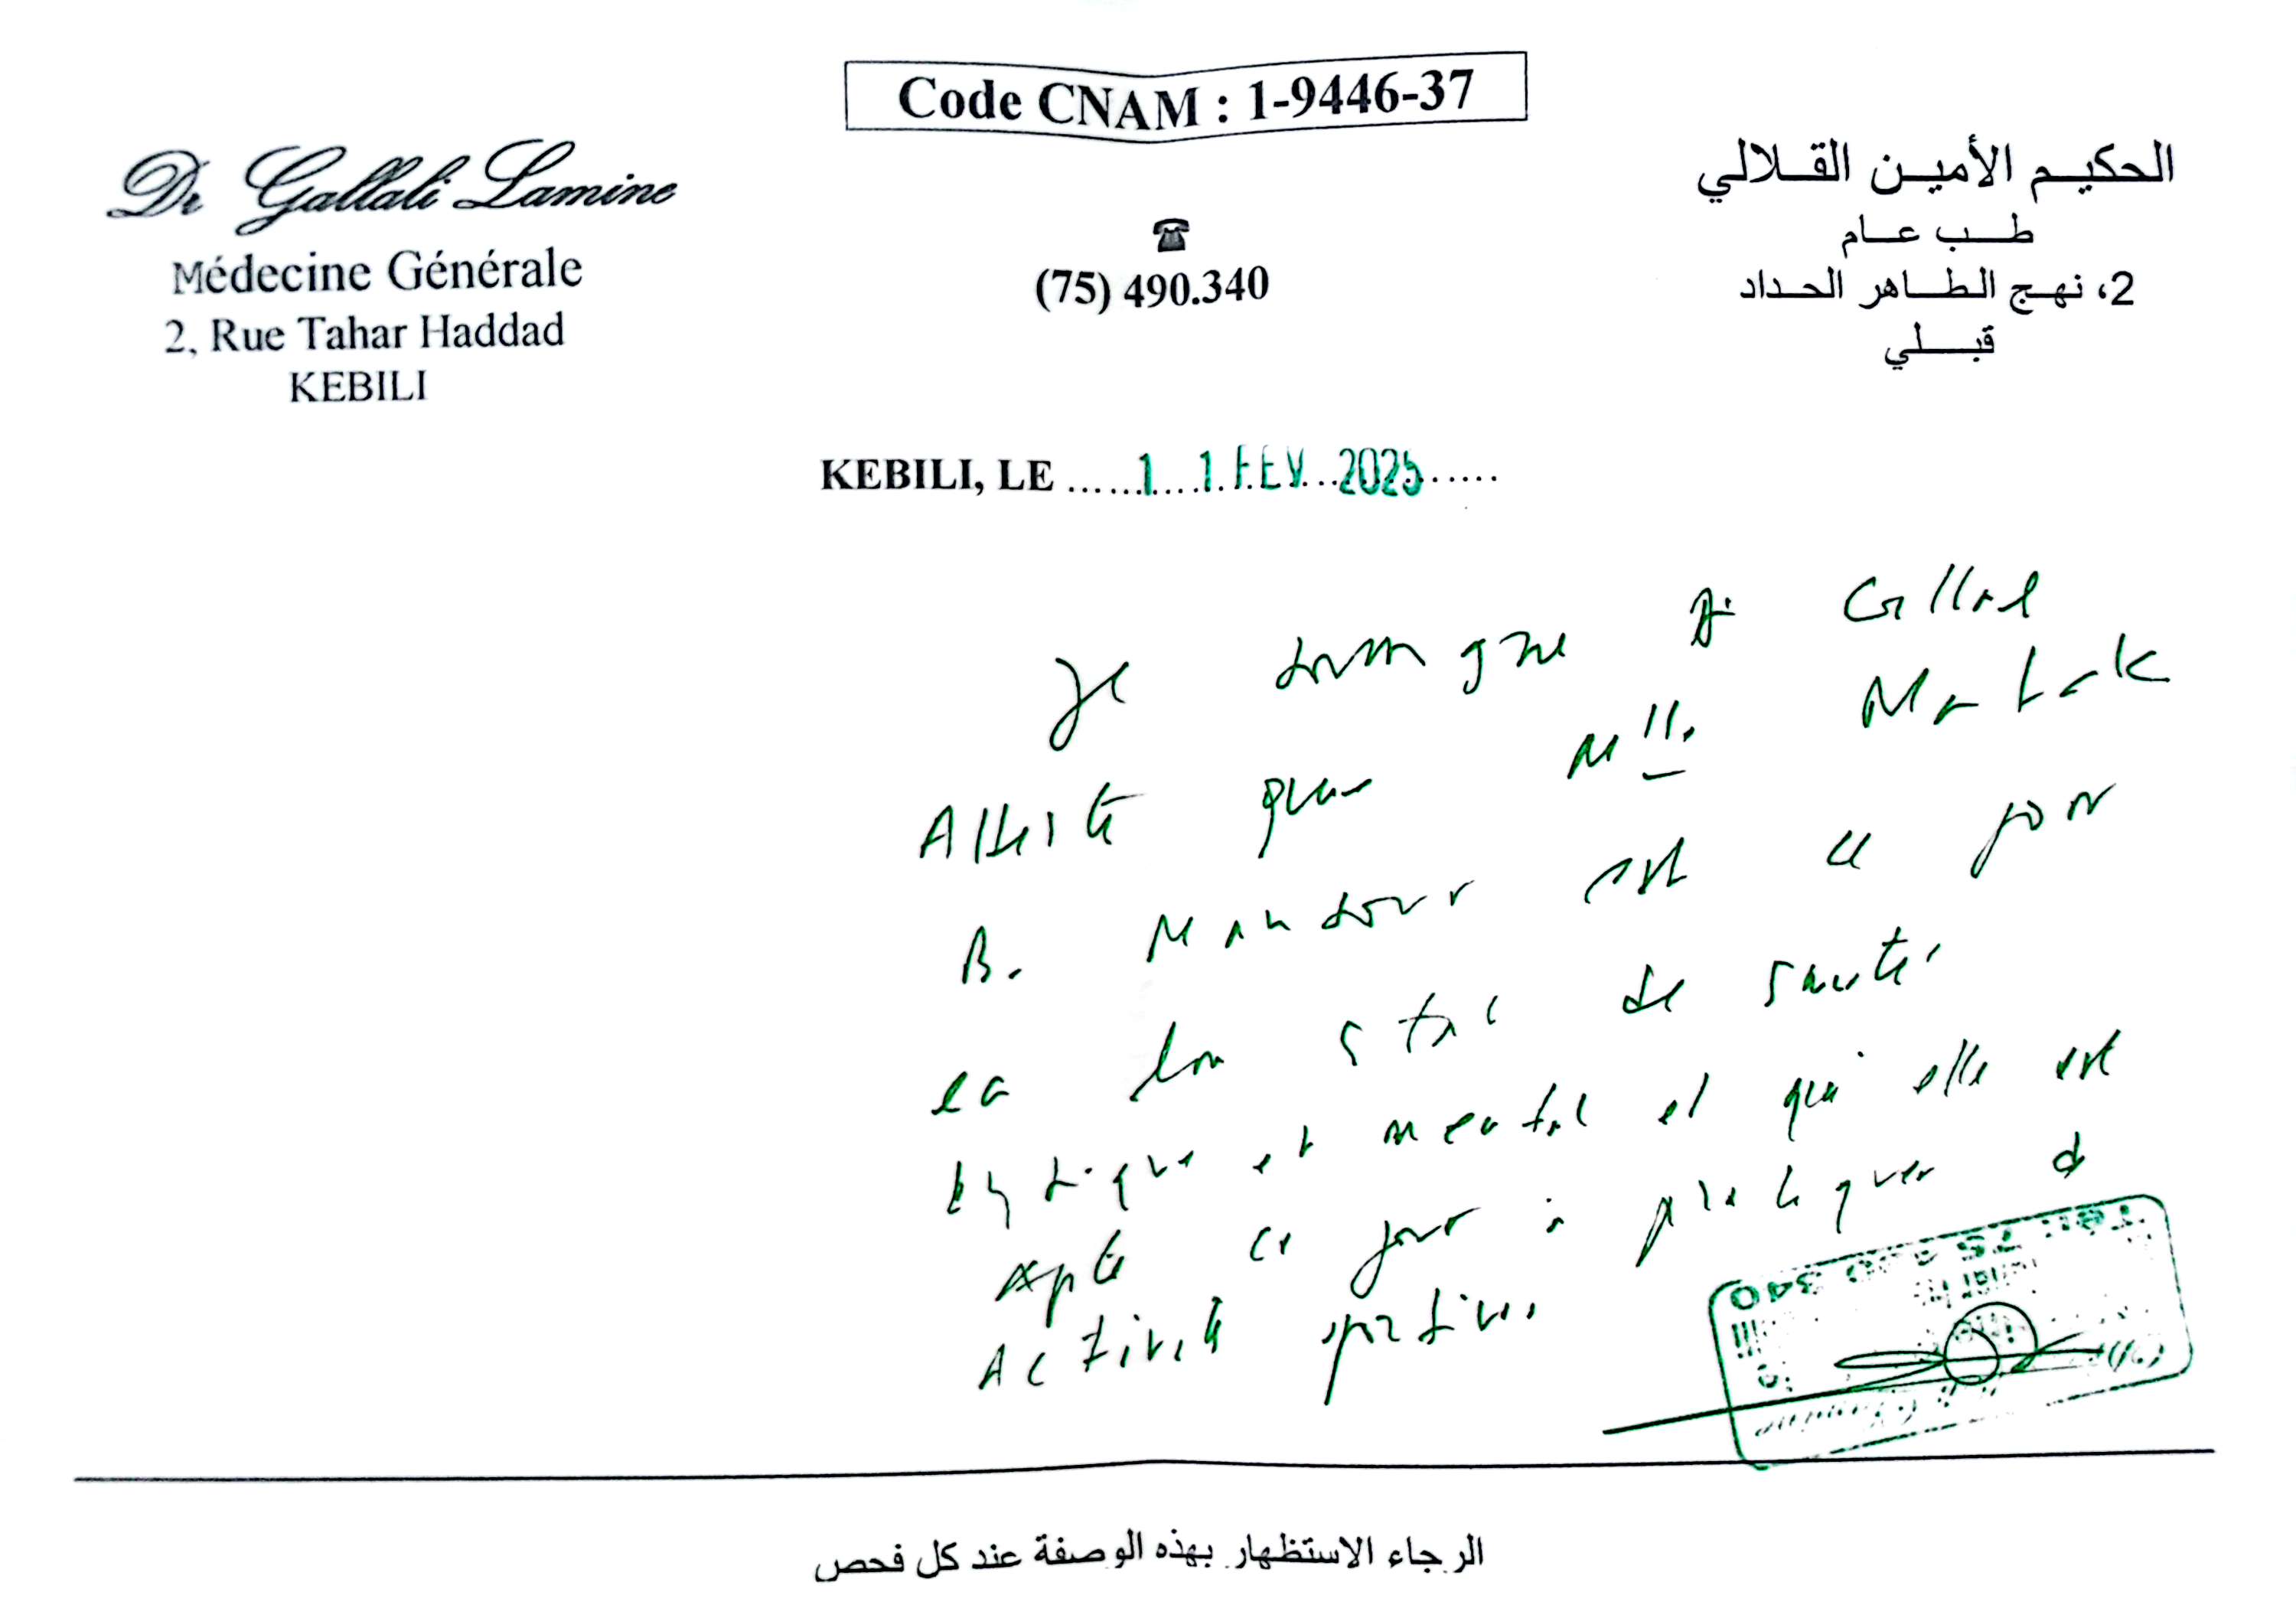 Code CNAM : 1-9446-37
Dr Gallali Lamine
Médecine Générale
2, Rue Tahar Haddad
KEBILI
☎
(75) 490.340
الحكيم الأمين القلالي
طب عام
2، نهج الطاهر الحداد
قبلي
KEBILI, LE 11 FEV 2025
Je soussigné Dr Gallal
Atteste que Mlle
B. Mansour est ce jour
en bon état de santé
physique et mental et qu'elle est
apte ce jour à pratiquer d
Activité sportives
الرجاء الاستظهار بهذه الوصفة عند كل فحص